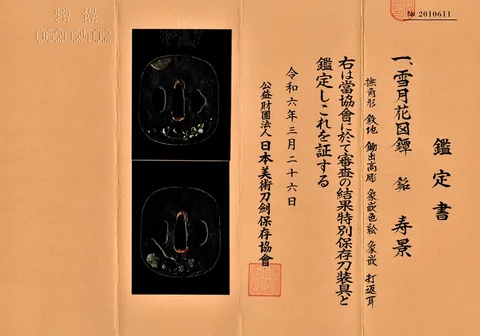 № 2010611
鑑定書
一、雪月花図鐔 銘 寿景
撫角形 鉄地 鋤出高彫 象嵌色絵 象嵌 打返耳
右は當協會に於て審査の結果特別保存刀装具と
鑑定しこれを証する
令和六年三月二十六日
公益財團法人日本美術刀劍保存協會